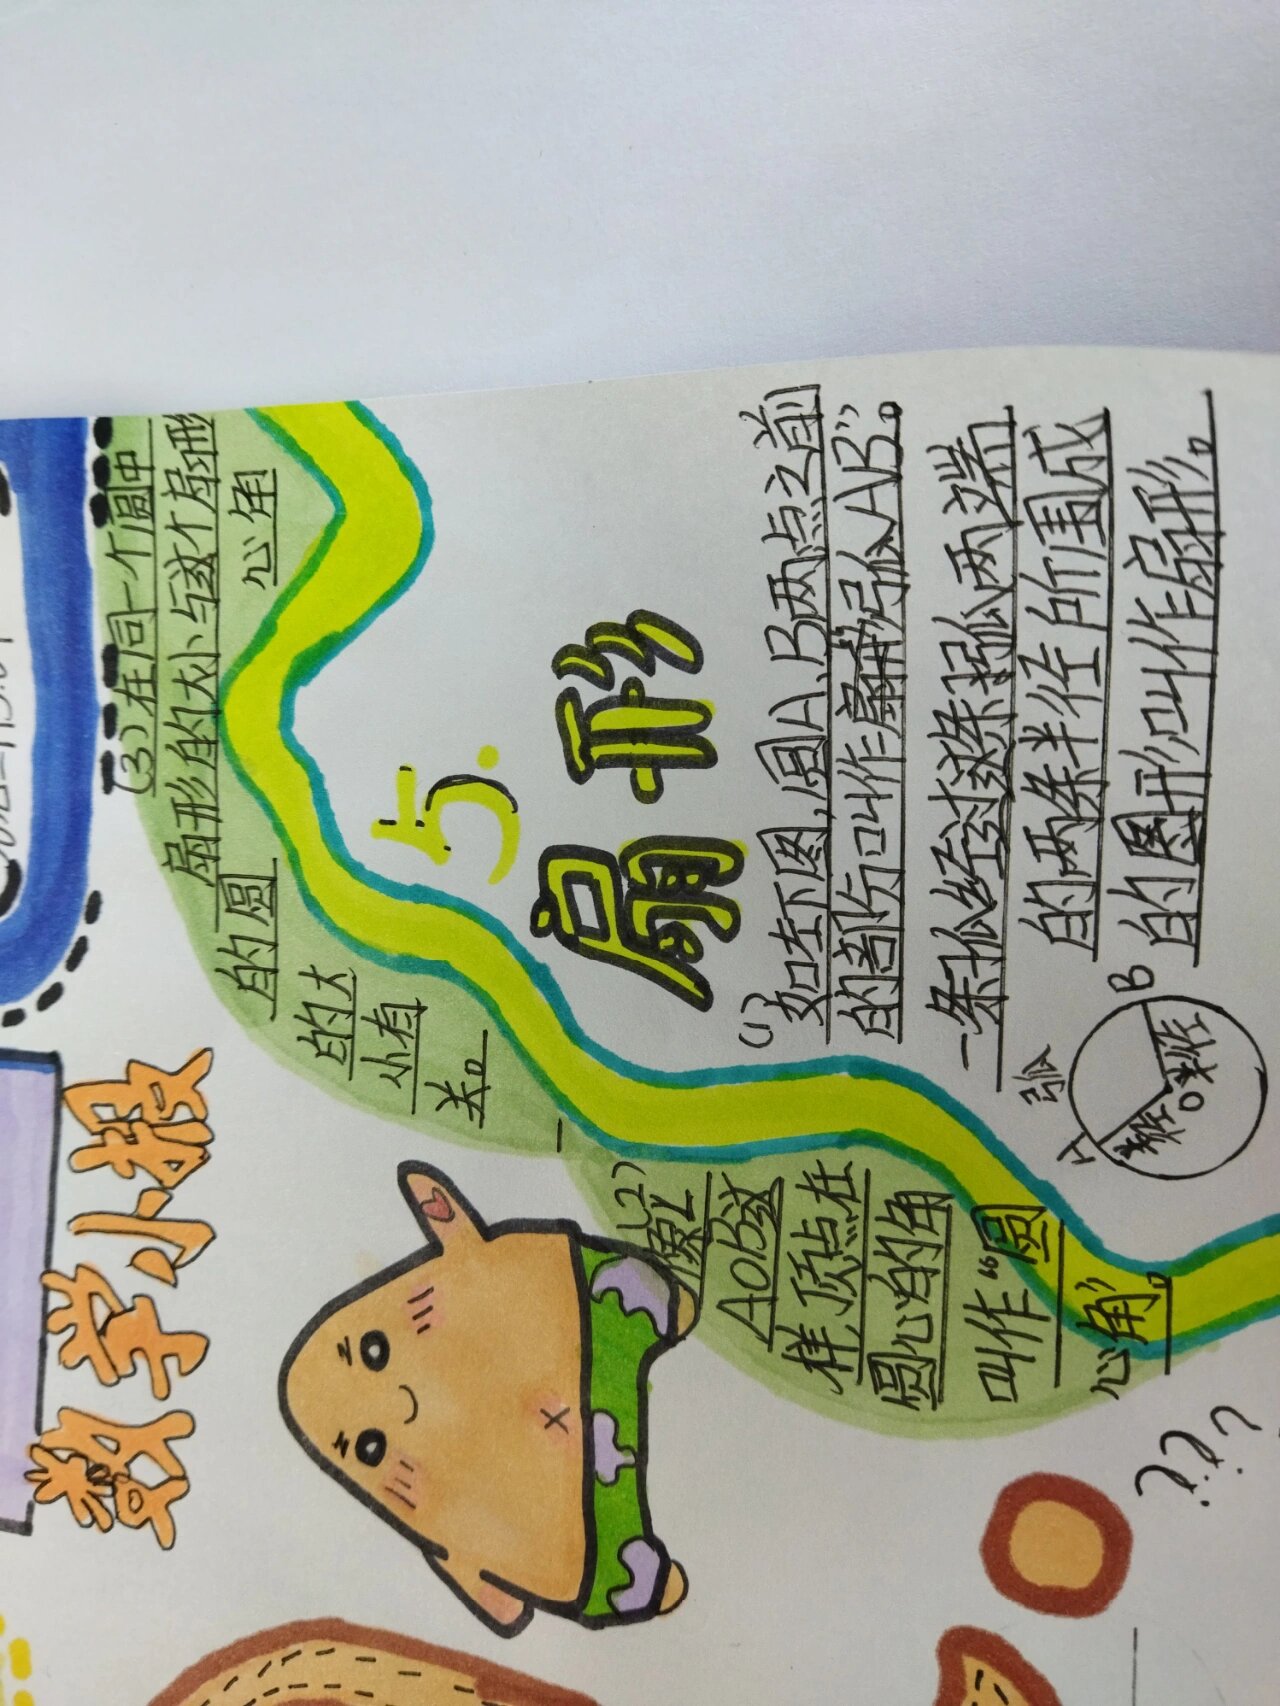 数学小报
5.
扇形
(1)
如左下图,圆A、B两点之前
的部份叫作扇弧AB”。
一条弧经过这条弧两端
的两条半径所围成
的圆形叫作扇形。
弧
A
B
O
半径
半径
(2)
像∠
AOB这
样,顶点在
圆心的角
叫作“圆
心角”。
(3)在同一个圆中
扇形的大小与这个扇形
的圆
心角
的大
小有
关。